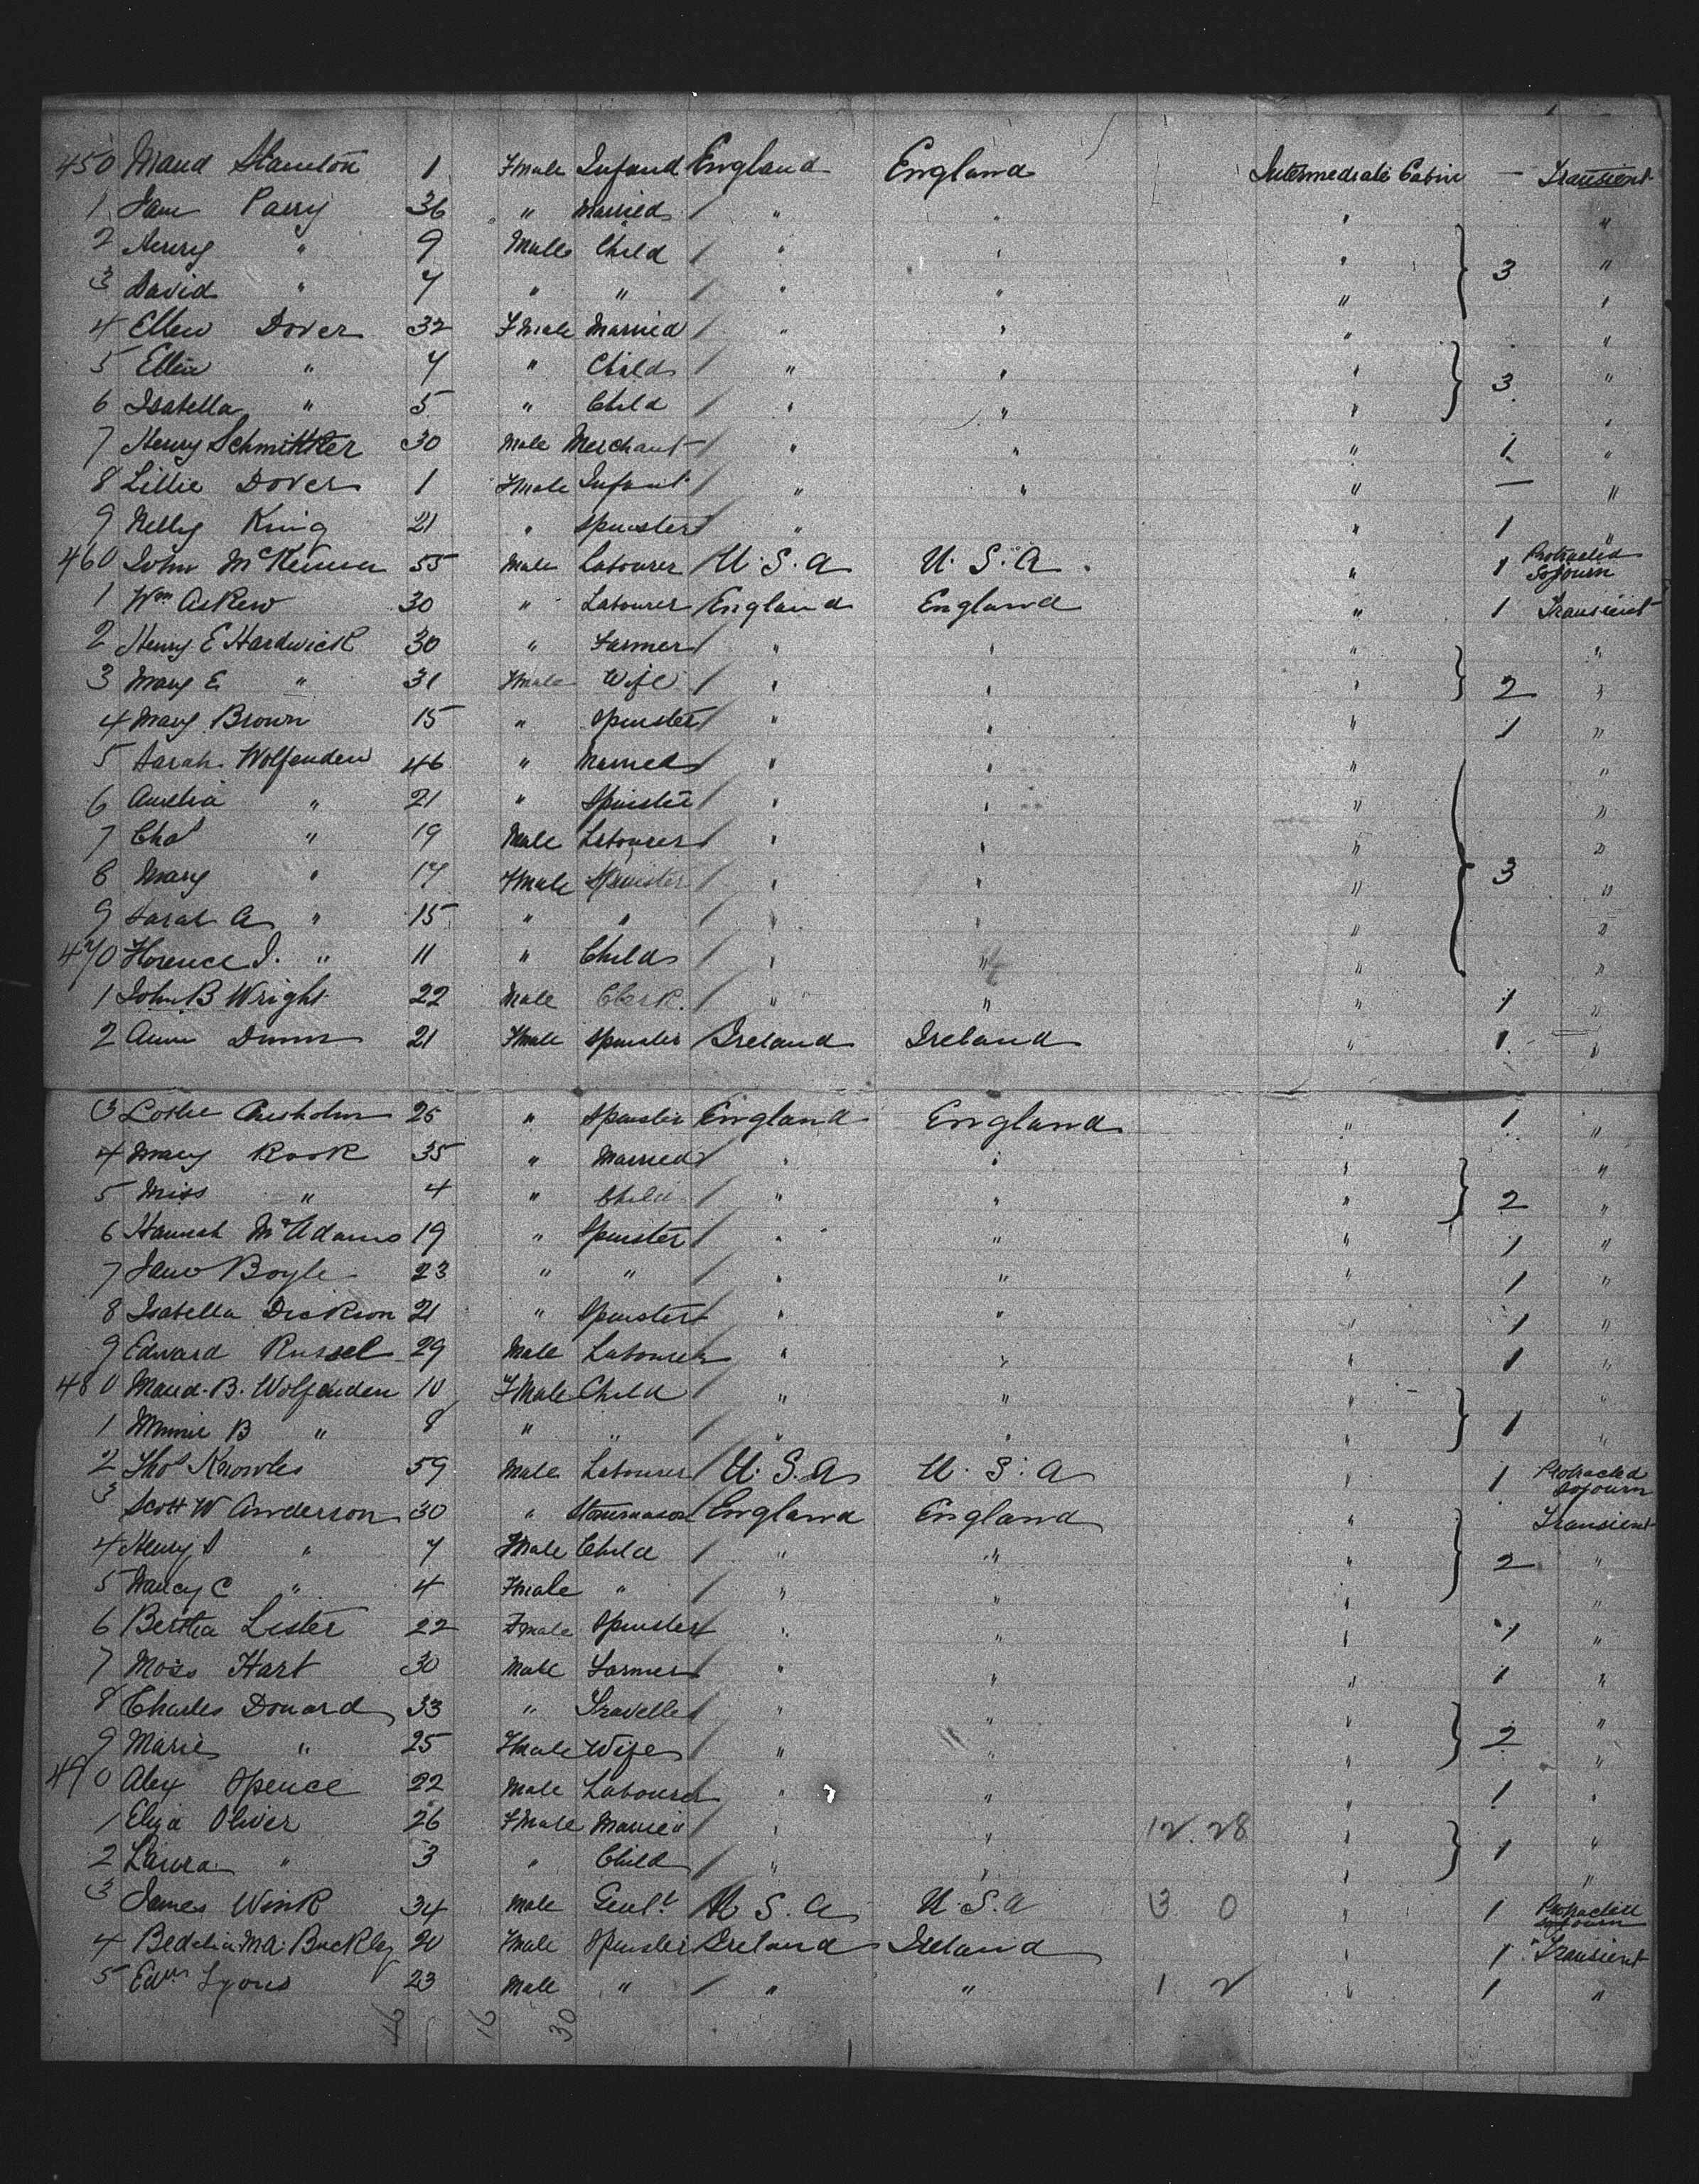 450 Maud Staunton 1 Fmale Infand England England Intermediate Cabin — Transient
1 Jane Parry 36 " Married / " " " "
2 Henry " 9 Male Child / " " " } 3 "
3 David " 7 " " / " " " "
4 Ellen Dover 32 Fmale Married / " " " "
5 Ellen " 7 " Child / " " " } 3 "
6 Isabella " 5 " Child / " " " "
7 Henry Schmittker 30 Male Merchant / " " " 1 "
8 Lillie Dover 1 Fmale Infant / " " " — "
9 Nelly King 21 " Spinster / " " " 1 "
460 John McKenna 55 Male Labourer U.S.A U.S.A. " 1 Protracted Sojourn
1 Wm Askew 30 " Labourer / England England " 1 Transient
2 Henry E Hardwick 30 " Farmer / " " " "
3 Mary E " 31 Fmale Wife / " " " } 2 "
4 Mary Brown 15 " Spinster / " " " 1 "
5 Sarah Wolfenden 46 " Married / " " " "
6 Amelia " 21 " Spinster / " " " "
7 Chas " 19 Male Labourer / " " " "
8 Mary " 17 Fmale Spinster / " " " } 3 "
9 Sarah A " 15 " " / " " " "
470 Florence J. " 11 " Child / " " " "
1 John B Wright 22 Male Clerk / " " " 1 "
2 Annie Dunn 21 Fmale Spinster / Ireland Ireland " 1 — "
3 Chisholm 25 " Spinster England England " 1 "
4 Mary Rook 35 " Married / " " " "
5 Miss " 4 " Child / " " " } 2 "
6 Hannah McAdams 19 " Spinster / " " " 1 "
7 Jane Boyle 23 " " / " " " 1 "
8 Isabella Dickson 21 " Spinster / " " " 1 "
9 Edward Russel 29 Male Labourer / " " " 1 "
480 Maud. B. Wolfenden 10 Fmale Child / " " " "
1 Minnie B " 8 " " / " " " } 1 "
2 Thos Knowles 59 Male Labourer / U.S.A U.S.A " 1 Protracted Sojourn
3 Scott W Anderson 30 " Stonemason England England " Transient
4 Henry S " 7 Male Child / " " " } 2 "
5 Nancy C " 4 Fmale " / " " " "
6 Bertha Lester 22 Fmale Spinster / " " " 1 "
7 Moss Hart 30 Male Farmer / " " " 1 "
8 Charles Donard 33 " Traveller / " " " "
9 Marie " 25 Fmale Wife / " " " } 2 "
490 Alex Spence 22 Male Labourer / " " " 1 "
1 Eliza Oliver 26 Fmale Married / " " 12.28 " "
2 Laura " 3 " Child / " " " } 1 "
3 James Wink 34 Male Gent. U.S.A U.S.A 3 0 " 1 Protracted Sojourn
4 Bedelia Buckley 20 Fmale Spinster Ireland Ireland " 1 Transient
5 Edw. Lyons 23 Male " / " " 1 2 " 1 "
16 16 30